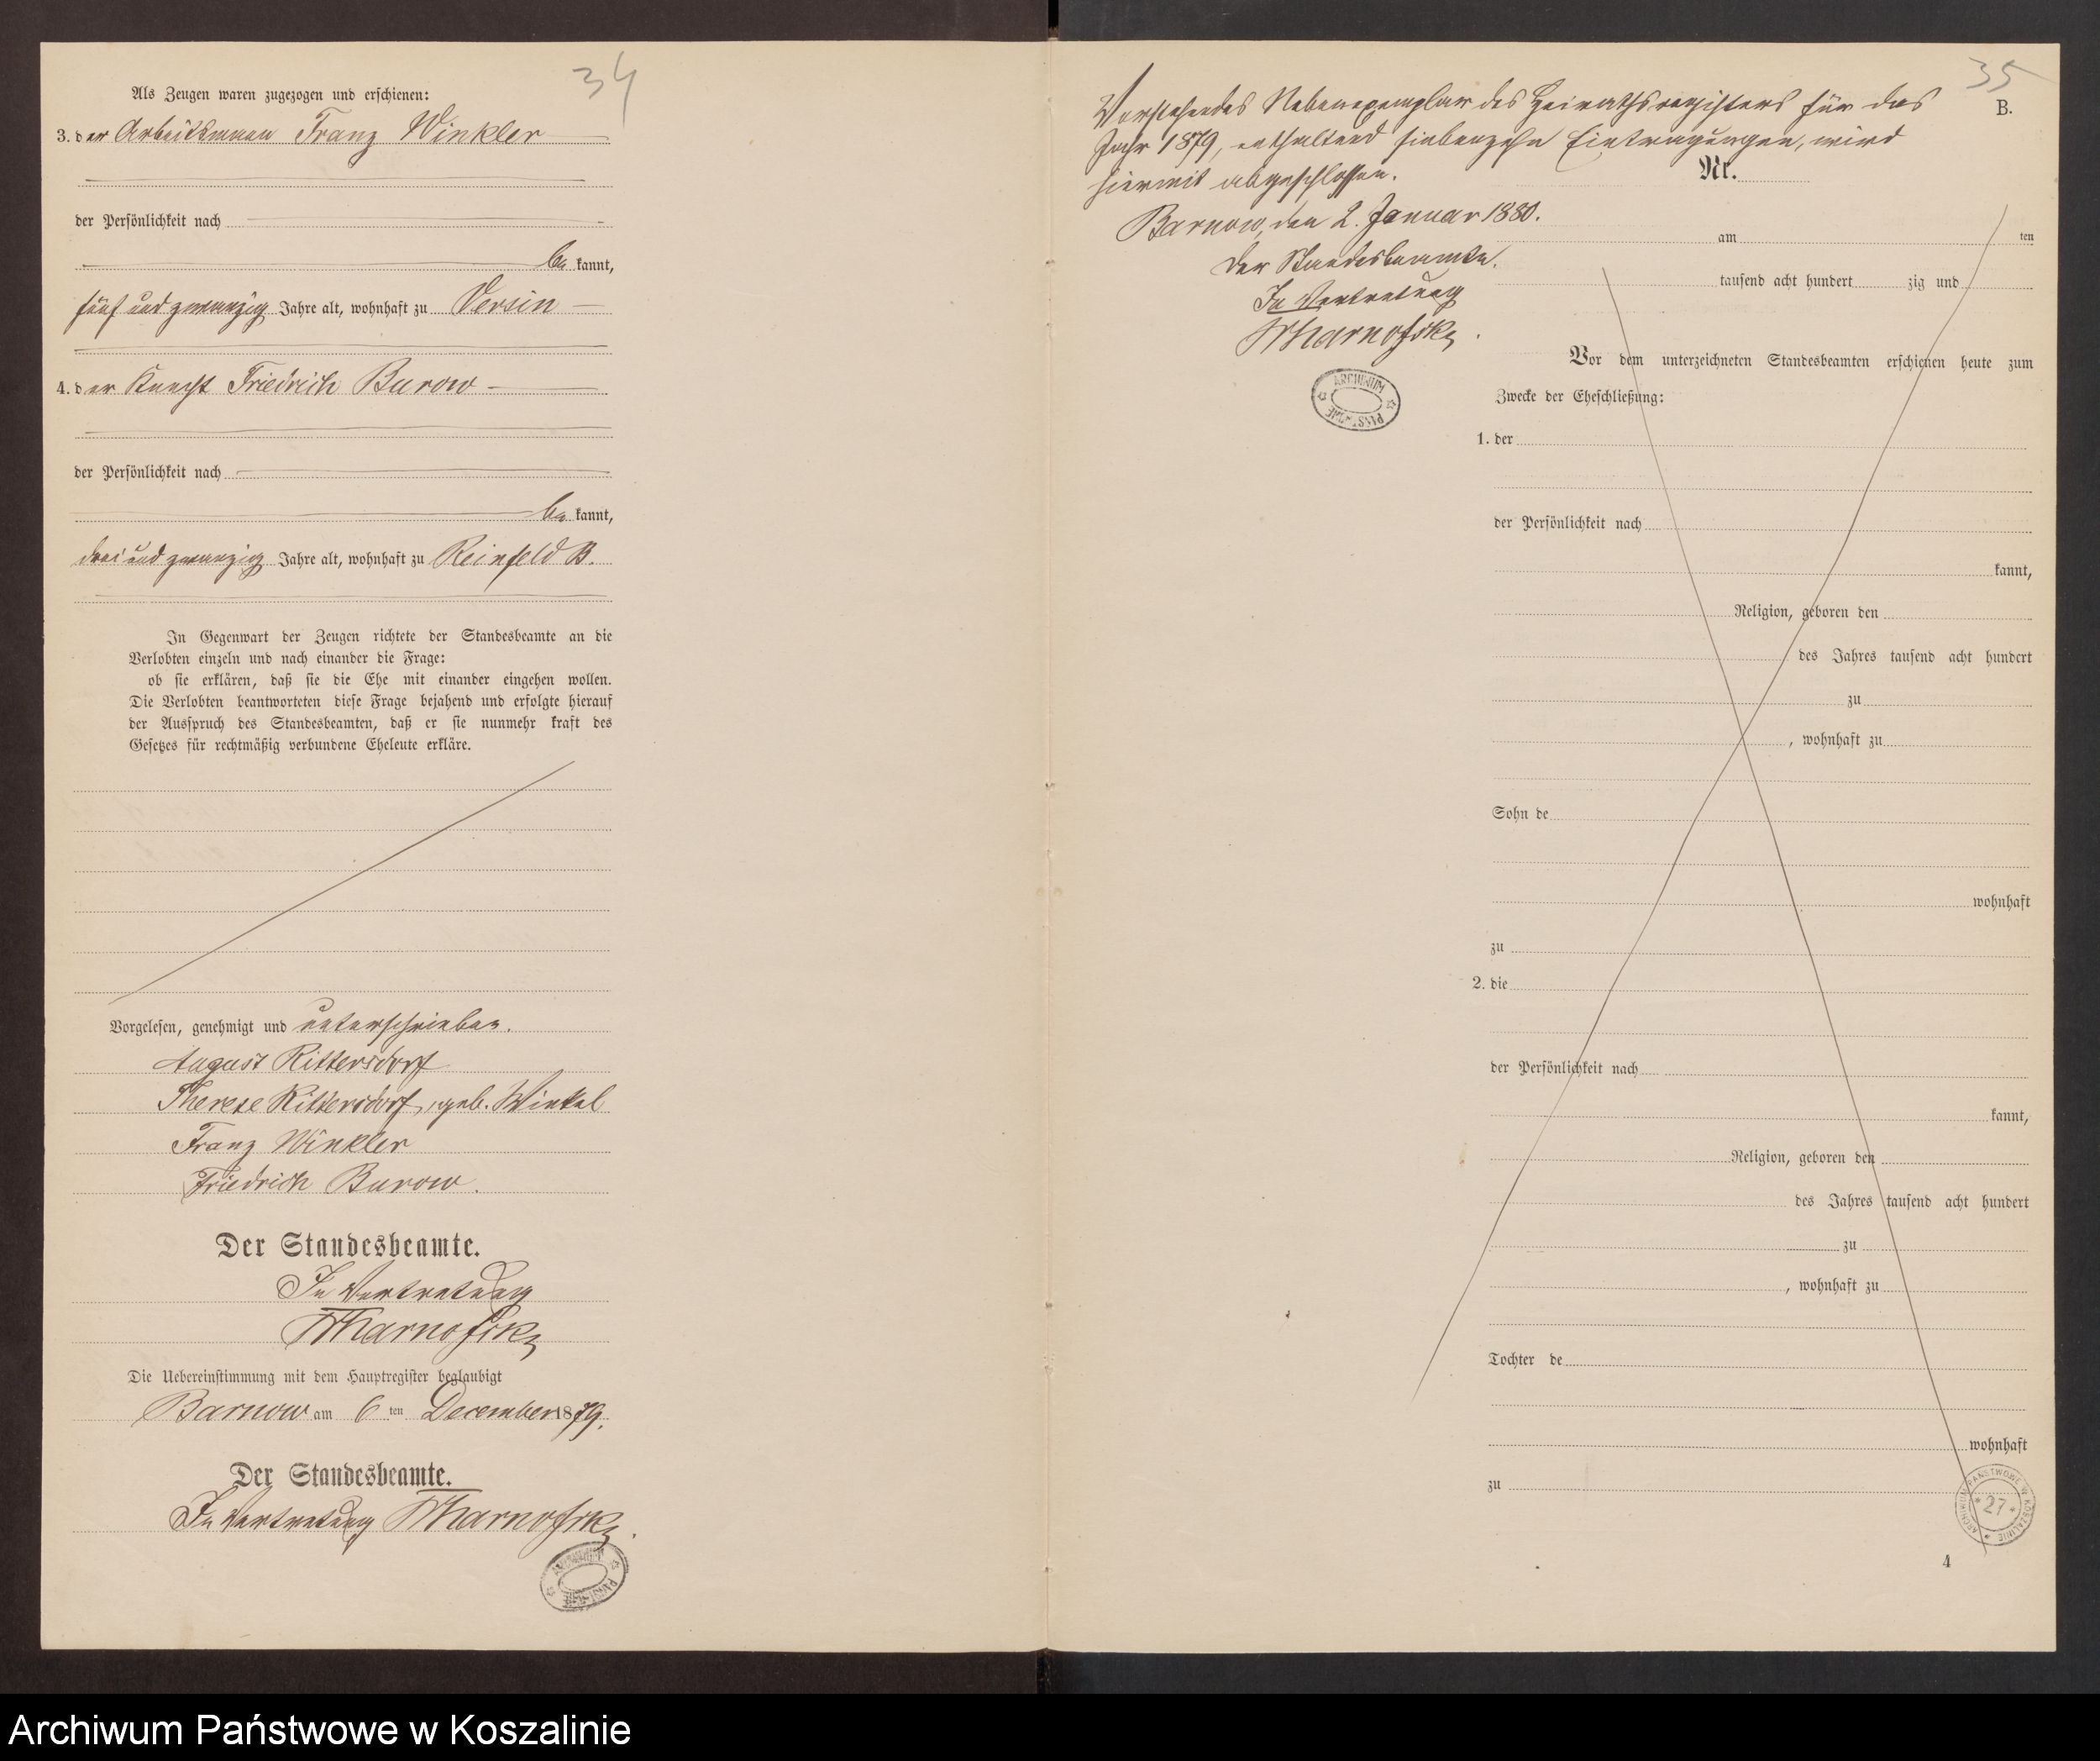 34
Als Zeugen waren zugezogen und erschienen:
3. der Arbeitsmann Franz Winkler
der Persönlichkeit nach
be kannt,
fünf und zwanzig Jahre alt, wohnhaft zu Versin
4. der Knecht Friedrich Burow
der Persönlichkeit nach
be kannt,
drei und zwanzig Jahre alt, wohnhaft zu Reinfeld B.
In Gegenwart der Zeugen richtete der Standesbeamte an die
Verlobten einzeln und nach einander die Frage:
ob sie erklären, daß sie die Ehe mit einander eingehen wollen.
Die Verlobten beantworteten diese Frage bejahend und erfolgte hierauf
der Ausspruch des Standesbeamten, daß er sie nunmehr kraft des
Gesetzes für rechtmäßig verbundene Eheleute erkläre.
Vorgelesen, genehmigt und unterschrieben.
August Rittersdorf
Therese Rittersdorf, geb. Winkel
Franz Winkler
Friedrich Burow.
Der Standesbeamte.
In Vertretung
Die Uebereinstimmung mit dem Hauptregister beglaubigt
Barnow am 6 ten December 1879.
Der Standesbeamte.
In Vertretung
ARCHIWUM PAŃSTWOWE
35
B.
Vorstehendes Nebenexemplar des Heirathsregisters für das
Jahr 1879, enthaltend siebenzehn Eintragungen, wird
hiermit abgeschlossen.
Barnow, den 2. Januar 1880.
Der Standesbeamte.
In Vertretung
ARCHIWUM PAŃSTWOWE
Nr.
am ten
tausend acht hundert zig und
Vor dem unterzeichneten Standesbeamten erschienen heute zum
Zwecke der Eheschließung:
1. der
der Persönlichkeit nach
kannt,
Religion, geboren den
des Jahres tausend acht hundert
zu
, wohnhaft zu
Sohn de
wohnhaft
zu
2. die
der Persönlichkeit nach
kannt,
Religion, geboren den
des Jahres tausend acht hundert
zu
, wohnhaft zu
Tochter de
wohnhaft
zu
ARCHIWUM PAŃSTWOWE W KOSZALINIE
* 27 *
4
Archiwum Państwowe w Koszalinie